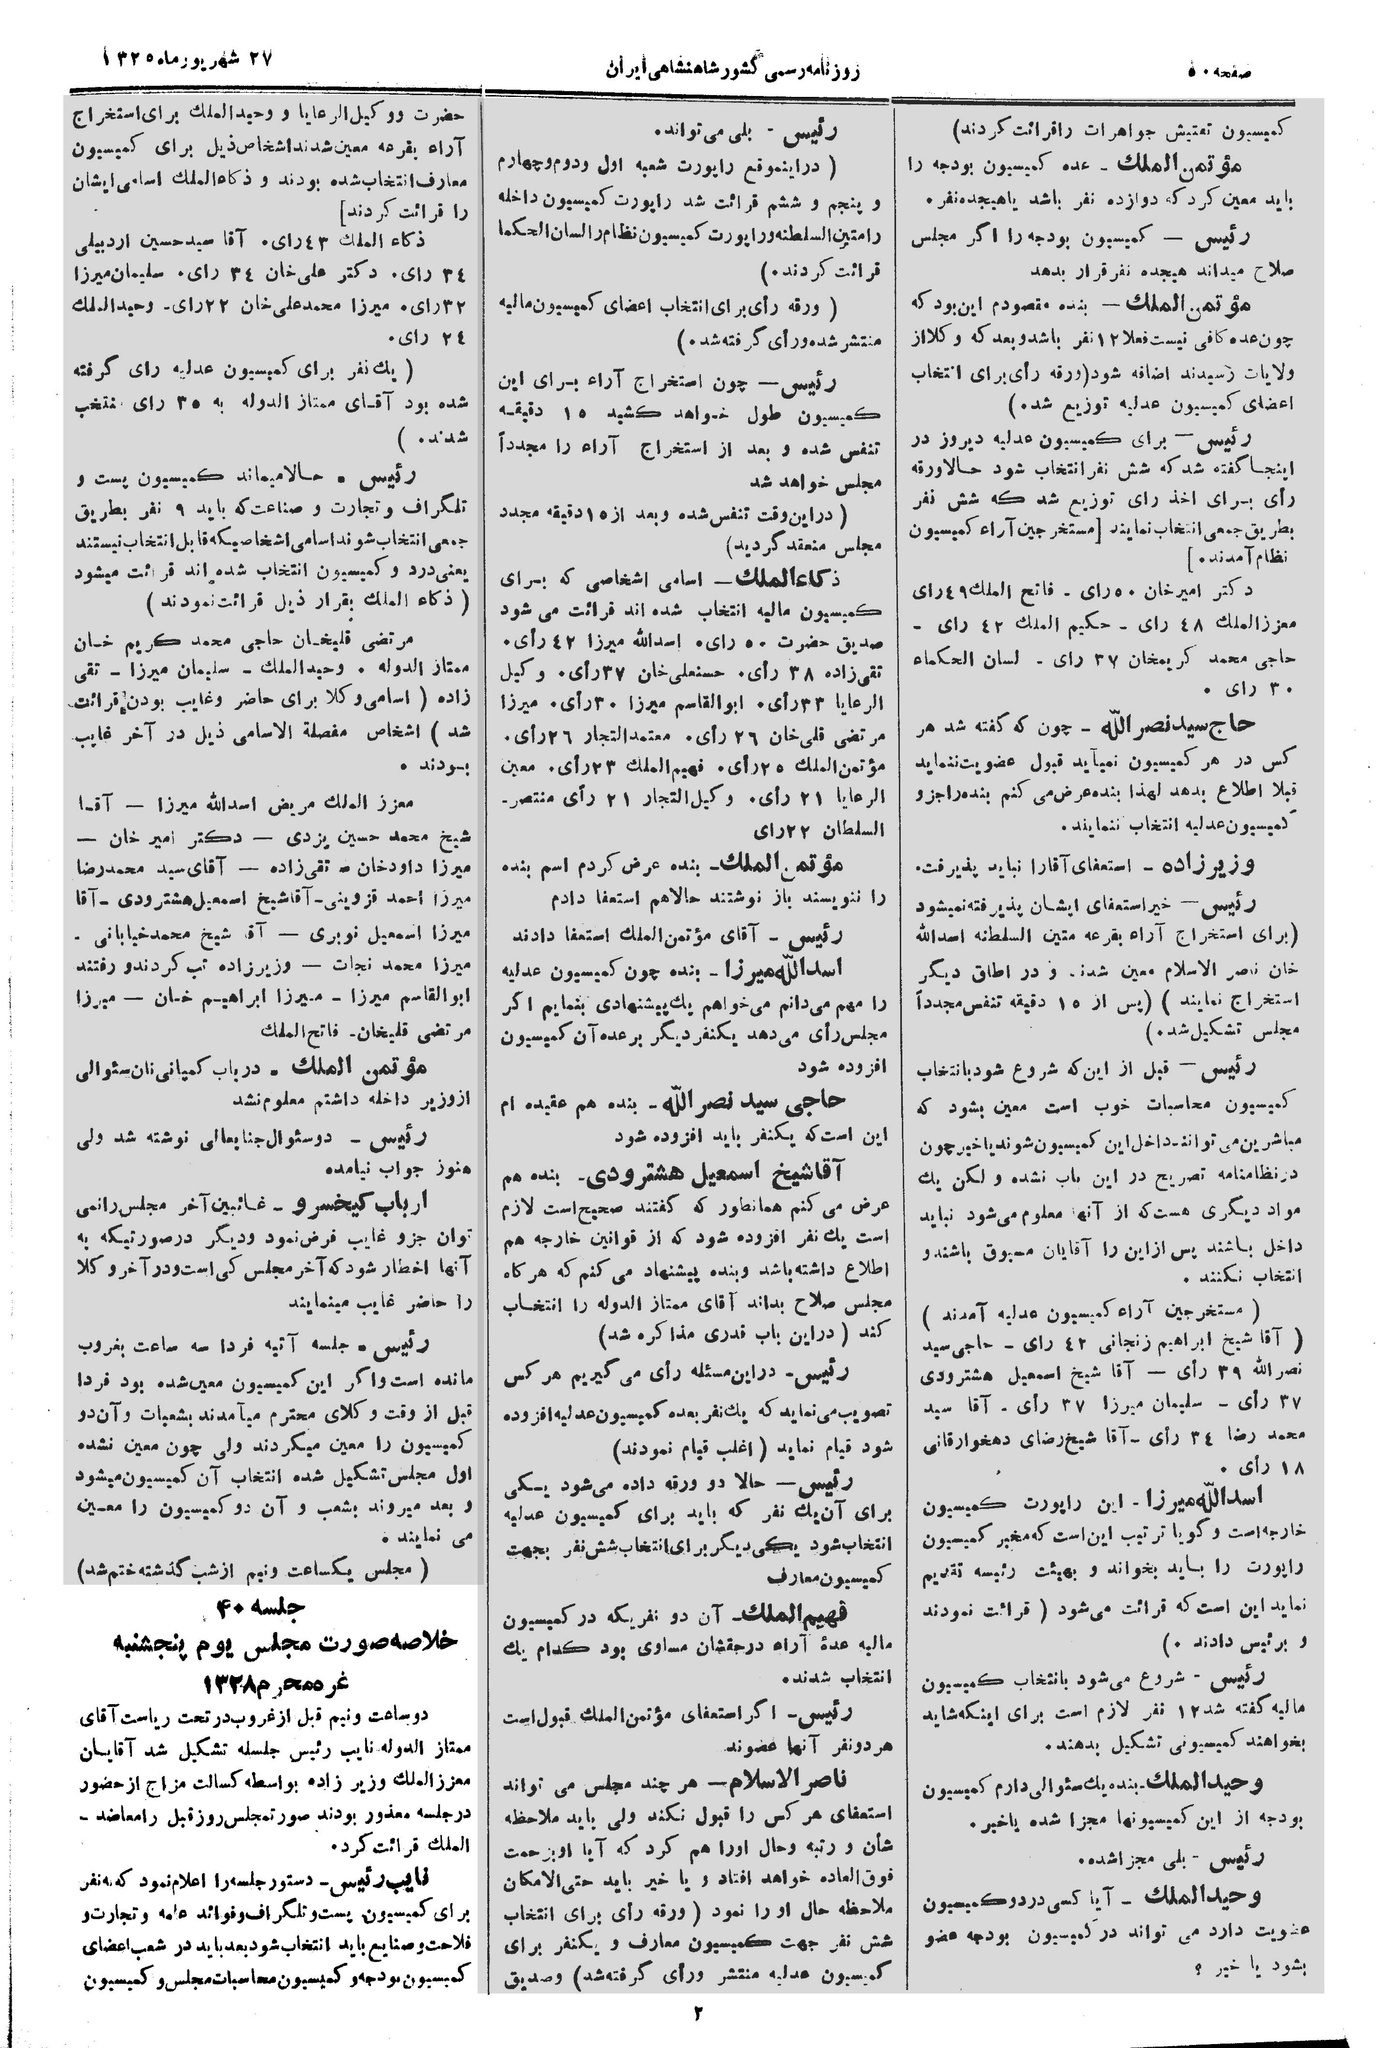 صفحه ۵۰
روزنامه رسمی کشور شاهنشاهی ایران
۲۷ شهریورماه ۱۳۲۵
کمیسیون تفتیش جواهرات را قرائت کردند)
مؤتمن الملک ـ عده کمیسیون بودجه را
باید معین کرد که دوازده نفر باشد یا هیجده نفر.
رئیس — کمیسیون بودجه را اگر مجلس
صلاح میداند هیجده نفر قرار بدهد
مؤتمن الملک — بنده مقصودم این بود که
چون عده کافی نیست فعلا ۱۲ نفر باشد و بعد که وکلا از
ولایات رسیدند اضافه شود (ورقه رأی برای انتخاب
اعضای کمیسیون عدلیه توزیع شد.)
رئیس — برای کمیسیون عدلیه دیروز در
اینجا گفته شد که شش نفر انتخاب شود حالا ورقه
رأی برای اخذ رای توزیع شد که شش نفر
بطریق جمعی انتخاب نمایند [مستخرجین آراء کمیسیون
نظام آمدند.]
دکتر امیرخان ۵۰ رای ـ فاتح الملک ۴۹ رای
معزز الملک ۴۸ رای ـ حکیم الملک ۴۲ رای ـ
حاجی محمد کریمخان ۳۷ رای ـ لسان الحکماء
۳۰ رای .
حاج سید نصر الله ـ چون که گفته شد هر
کس در هر کمیسیون نمیآید قبول عضویت ننماید
قبلا اطلاع بدهد لهذا بنده عرض می کنم بنده را جزو
کمیسیون عدلیه انتخاب ننمایند.
وزیرزاده ـ استعفای آقا را نباید پذیرفت.
رئیس — خیر استعفای ایشان پذیرفته نمیشود
(برای استخراج آراء بقرعه متین السلطنه اسدالله
خان ناصر الاسلام معین شدند و در اطاق دیگر
استخراج نمایند ) (پس از ۱۵ دقیقه تنفس مجدداً
مجلس تشکیل شد.)
رئیس — قبل از این که شروع شود بانتخاب
کمیسیون محاسبات خوب است معین بشود که
مباشرین می توانند داخل این کمیسیون شوند یا خیر چون
در نظامنامه تصریح در این باب نشده و لکن یک
مواد دیگری هست که از آنها معلوم می شود نباید
داخل باشند پس از این را آقایان مسبوق باشند و
انتخاب نکنند .
( مستخرجین آراء کمیسیون عدلیه آمدند )
( آقا شیخ ابراهیم زنجانی ۴۲ رای ـ حاجی سید
نصر الله ۳۹ رأی — آقا شیخ اسمعیل هشترودی
۳۷ رأی ـ سلیمان میرزا ۳۷ رأی ـ آقا سید
محمد رضا ۳۴ رأی ـ آقا شیخ رضای دهخوارقانی
۱۸ رأی .
اسد الله میرزا ـ این راپورت کمیسیون
خارجه است و گویا ترتیب این است که مخبر کمیسیون
راپورت را باید بخواند و بهیئت رئیسه تقدیم
نماید این است که قرائت می شود ( قرائت نمودند
و برئیس دادند .)
رئیس ـ شروع می شود بانتخاب کمیسیون
مالیه گفته شد ۱۲ نفر لازم است برای اینکه شاید
بخواهند کمیسیونی تشکیل بدهند.
وحید الملک ـ بنده یک سئوالی دارم کمیسیون
بودجه از این کمیسیونها مجزا شده یا خیر.
رئیس ـ بلی مجزا شده.
وحید الملک ـ آیا کسی در دو کمیسیون
عضویت دارد می تواند در کمیسیون بودجه عضو
بشود یا خیر ؟
رئیس ـ بلی می تواند.
( در اینموقع راپورت شعبه اول و دوم و چهارم
و پنجم و ششم قرائت شد راپورت کمیسیون داخله
را متین السلطنه و راپورت کمیسیون نظام را لسان الحکما
قرائت کردند.)
( ورقه رأی برای انتخاب اعضای کمیسیون مالیه
منتشر شده و رأی گرفته شد.)
رئیس — چون استخراج آراء برای این
کمیسیون طول خواهد کشید ۱۵ دقیقه
تنفس شده و بعد از استخراج آراء را مجدداً
مجلس خواهد شد
( در این وقت تنفس شده و بعد از ۱۵ دقیقه مجدد
مجلس منعقد گردید)
ذکاء الملک — اسامی اشخاصی که برای
کمیسیون مالیه انتخاب شده اند قرائت می شود
صدیق حضرت ۵۰ رای. اسدالله میرزا ۴۲ رأی.
تقی زاده ۳۸ رأی. حسنعلی خان ۳۷ رأی. وکیل
الرعایا ۳۳ رأی. ابوالقاسم میرزا ۳۰ رأی. میرزا
مرتضی قلی خان ۲۶ رأی. معتمد التجار ۲۶ رأی.
مؤتمن الملک ۲۵ رأی. فهیم الملک ۲۳ رأی. معین
الرعایا ۲۱ رأی. وکیل التجار ۲۱ رأی منتصر ـ
السلطان ۲۲ رای
مؤتمن الملک ـ بنده عرض کردم اسم بنده
را ننویسند باز نوشتند حالا هم استعفا دادم
رئیس ـ آقای مؤتمن الملک استعفا دادند
اسد الله میرزا ـ بنده چون کمیسیون عدلیه
را مهم می دانم می خواهم یک پیشنهادی بنمایم اگر
مجلس رأی می دهد یکنفر دیگر بر عده آن کمیسیون
افزوده شود
حاجی سید نصر الله ـ بنده هم عقیده ام
این است که یکنفر باید افزوده شود
آقا شیخ اسمعیل هشترودی ـ بنده هم
عرض می کنم همانطور که گفتند صحیح است لازم
است یک نفر افزوده شود که از قوانین خارجه هم
اطلاع داشته باشد و بنده پیشنهاد می کنم که هر گاه
مجلس صلاح بداند آقای ممتاز الدوله را انتخاب
کند ( در این باب قدری مذاکره شد)
رئیس ـ در این مسئله رأی می گیریم هر کس
تصویب می نماید که یک نفر بعده کمیسیون عدلیه افزوده
شود قیام نماید ( اغلب قیام نمودند)
رئیس — حالا دو ورقه داده می شود یکی
برای آن یک نفر که باید برای کمیسیون عدلیه
انتخاب شود یکی دیگر برای انتخاب شش نفر بجهت
کمیسیون معارف
فهیم الملک ـ آن دو نفریکه در کمیسیون
مالیه عدۀ آراء در حقشان مساوی بود کدام یک
انتخاب شدند.
رئیس ـ اگر استعفای مؤتمن الملک قبول است
هر دو نفر آنها عضوند
ناصر الاسلام — هر چند مجلس می تواند
استعفای هر کس را قبول نکند ولی باید ملاحظه
شأن و رتبه و حال او را هم کرد که آیا او بزحمت
فوق العاده خواهد افتاد و یا خیر باید حتی الامکان
ملاحظه حال او را نمود ( ورقه رأی برای انتخاب
شش نفر جهت کمیسیون معارف و یکنفر برای
کمیسیون عدلیه منتشر و رأی گرفته شد) و صدیق
حضرت و وکیل الرعایا و وحید الملک برای استخراج
آراء بقرعه معین شدند اشخاص ذیل برای کمیسیون
معارف انتخاب شده بودند و ذکاء الملک اسامی ایشان
را قرائت کردند]
ذکاء الملک ۴۳ رای. آقا سید حسین اردبیلی
۳۴ رای. دکتر علی خان ۳۴ رای. سلیمان میرزا
۳۲ رای. میرزا محمد علی خان ۲۲ رای ـ وحید الملک
۲۴ رای.
( یک نفر برای کمیسیون عدلیه رای گرفته
شده بود آقای ممتاز الدوله به ۳۵ رای منتخب
شدند. )
رئیس ـ حالا میماند کمیسیون پست و
تلگراف و تجارت و صناعت که باید ۹ نفر بطریق
جمعی انتخاب شوند اسامی اشخاصیکه قابل انتخاب نیستند
یعنی در دو کمیسیون انتخاب شده اند قرائت میشود
( ذکاء الملک بقرار ذیل قرائت نمودند )
مرتضی قلیخان حاجی محمد کریم خان
ممتاز الدوله . وحید الملک ـ سلیمان میرزا ـ تقی
زاده ( اسامی وکلا برای حاضر و غایب بودن قرائت
شد ) اشخاص مفصلة الاسامی ذیل در آخر غایب
بودند .
معزز الملک مریض اسدالله میرزا — آقا
شیخ محمد حسین یزدی — دکتر امیر خان —
میرزا داودخان ـ تقی زاده — آقای سید محمد رضا
میرزا احمد قزوینی ـ آقا شیخ اسمعیل هشترودی ـ آقا
میرزا اسمعیل نوبری — آقا شیخ محمد خیابانی ـ
میرزا محمد نجات — وزیرزاده تب کردند و رفتند
ابوالقاسم میرزا ـ میرزا ابراهیم خان — میرزا
مرتضی قلیخان ـ فاتح الملک
مؤتمن الملک ـ در باب کمپانی نان سئوالی
از وزیر داخله داشتم معلوم نشد
رئیس ـ دو سئوال جنابعالی نوشته شد ولی
هنوز جواب نیامده
ارباب کیخسرو ـ غائبین آخر مجلس را نمی
توان جزو غایب فرض نمود و دیگر در صورتیکه به
آنها اخطار شود که آخر مجلس کی است و در آخر و کلا
را حاضر غایب مینمایند
رئیس ـ جلسه آتیه فردا سه ساعت بغروب
مانده است و اگر این کمیسیون معین شده بود فردا
قبل از وقت وکلای محترم میآمدند بشعبات و آن دو
کمیسیون را معین میکردند ولی چون معین نشده
اول مجلس تشکیل شده انتخاب آن کمیسیون میشود
و بعد میروند بشعب و آن دو کمیسیون را معین
می نمایند .
( مجلس یکساعت و نیم از شب گذشته ختم شد)
جلسه ۴۰
خلاصه صورت مجلس یوم پنجشنبه
غره محرم ۱۳۲۸
دو ساعت و نیم قبل از غروب در تحت ریاست آقای
ممتاز الدوله نایب رئیس جلسه تشکیل شد آقایان
معزز الملک وزیر زاده بواسطه کسالت مزاج از حضور
در جلسه معذور بودند صورتمجلس روز قبل را معاضد ـ
الملک قرائت کرد.
نایب رئیس ـ دستور جلسه را اعلام نمود که نه نفر
برای کمیسیون پست و تلگراف و فوائد عامه و تجارت و
فلاحت و صنایع باید انتخاب شود بعد باید در شعب اعضای
کمیسیون بودجه و کمیسیون محاسبات مجلس و کمیسیون
۲